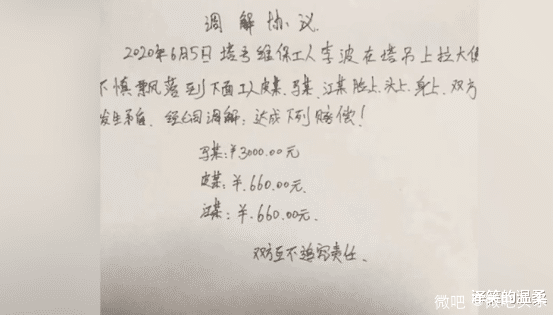 调解协议
2020年6月5日塔吊维保工人李波在塔吊上拉大便
不慎飘落到下面工人皮某、马某、江某脸上、头上、身上、双方
发生矛盾、经调解：达成下列赔偿！
马某：¥3000.00元
皮某：¥.660.00元.
江某：¥.660.00元.
双方互不追究责任.
微吧
泽笑的温柔